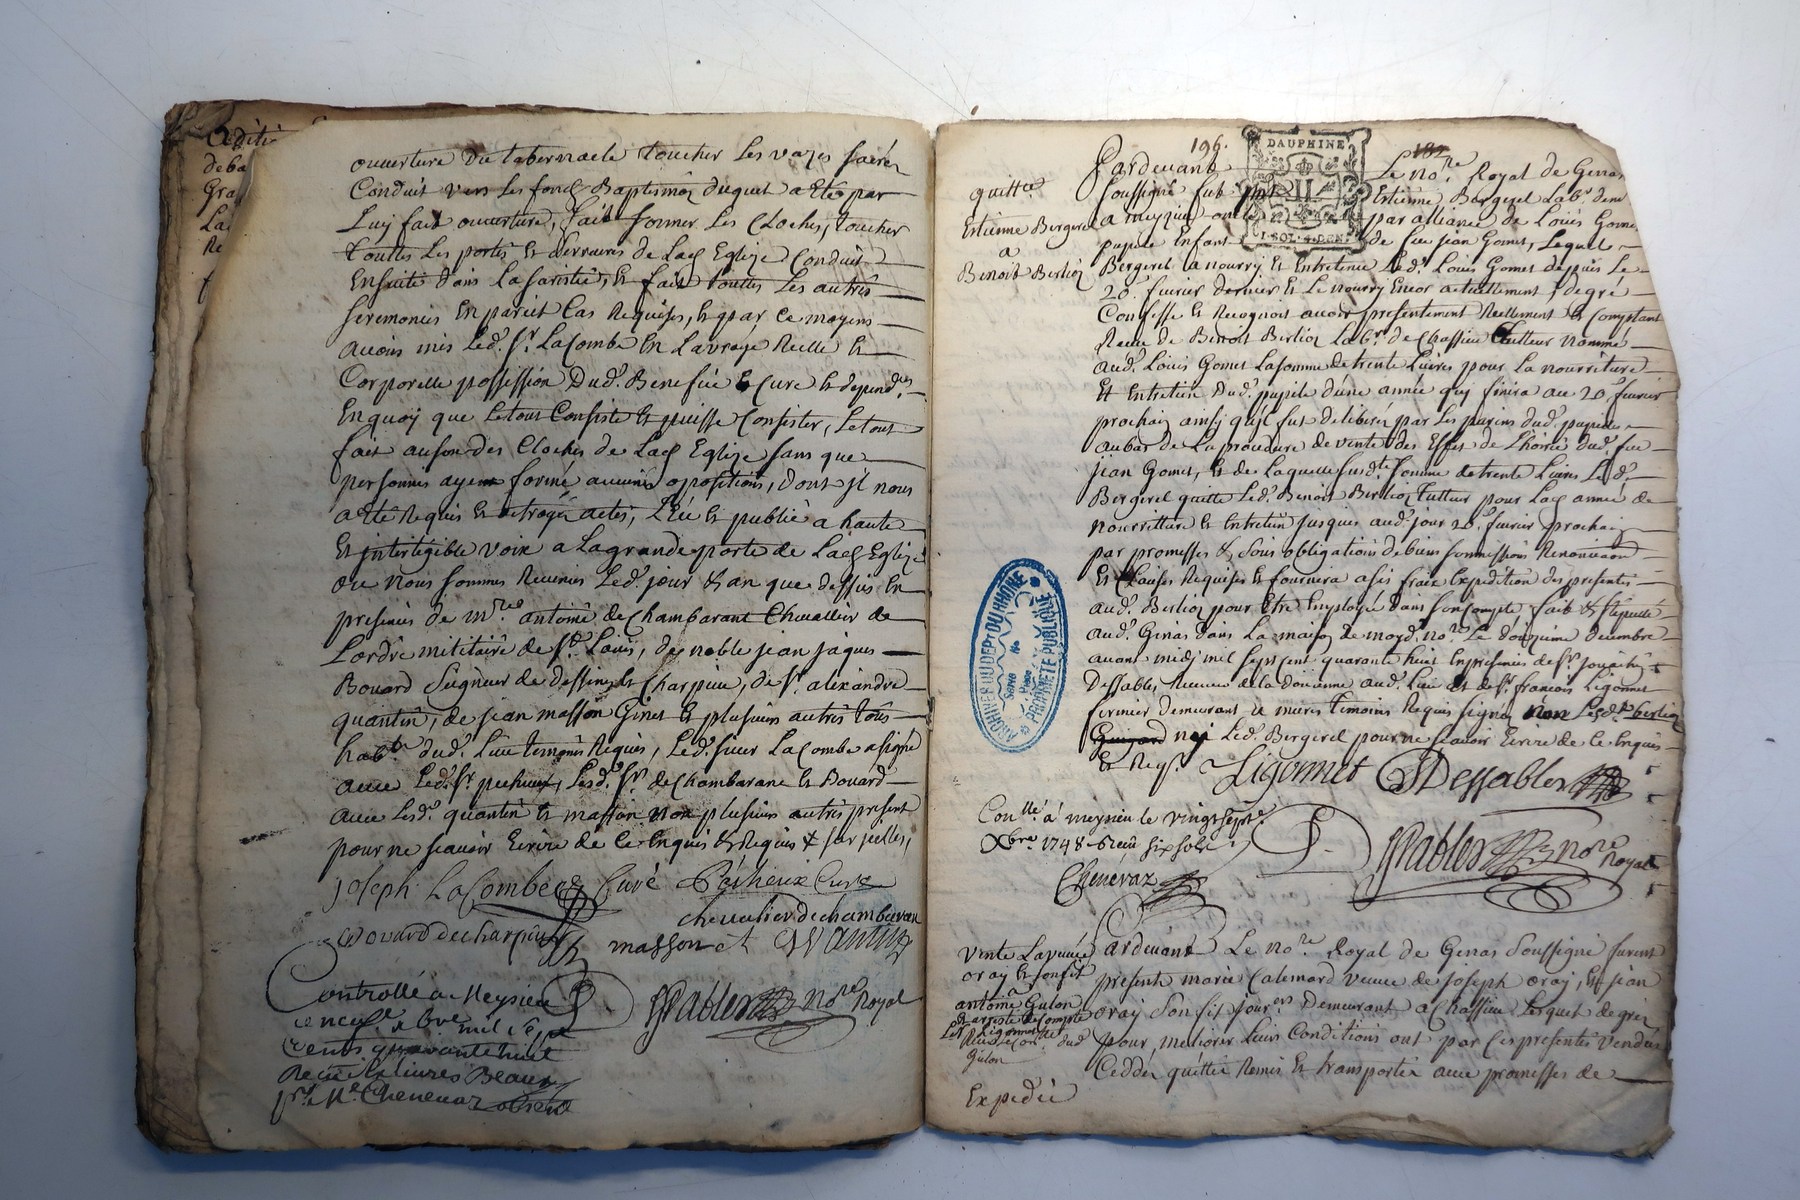 ouverture du tabernacle toucher les vazes sacréz
Conduit vers les fonds Baptismaux duquel a eté par
Luy fait ouverture, fait sonner les Cloches, toucher
touttes les portes et verroues de lad Eglize Conduit
Ensuitte dans la sacristie, et fait touttes les autres
seremonies En pareil Cas Requises, et par ce moyens
avons mis led. sr. LaCombe En la vraye Reelle et
Corporelle possession Dud. Benefice et Cure et depend.ces
En quoy que le tout Consiste et puisse Consister, le tout
fait au son des Cloches de lad Eglize sans que
personnes ayent formé aucunes opositions, dont il nous
a eté Requis et octroyer actes, Leu et publié a haute
Et intelegible voix a la grande porte de lad Eglize
ou nous sommes Revenus led. jour & an que dessus En
presences de mre. antoine de Chambarant Chevallier de
Lordre militaire de st. Louis, de noble jean jaques
Bouard Seigneur de dessine et Charpieu, de sr. alexandre
quantin, de jean masson Ginet et plusieurs autres tous
habts. dud. Lieu temoins Requis, led. sieur LaCombe a signé
avec led. sr. pecheux, lesd. srs. de Chambarant et Bouard
avec lesd. quantin et masson non plusieurs autres present
pour ne scavoir Ecrire de ce Enquis & Requis & par icelles,
joseph LaCombe Curé Pecheux Curé
chevallier de chambaran
Bouard de charpieu masson et quantin
Controllé a Meyzieu
le neuf xbre mil sept
Cents quarante huit
Recu livres
Chenevaz
DPablos Nore. Royal
196.
DAUPHINE
II
1 SOL. 4 DEN.
quittce
Estienne Bergeret
a
Benoit Berlioz
Pardevant Le nore. Royal de Genas
soussigné fut pnt. Estienne Bergeret Labr. dem
a meyzieu oncle par alliance de Louis Gomet
pupile Enfant de feu jean Gomet, Lequel
Bergeret a nourry Et Entretenu led. Louis Gomet depuis le
20. fevrier dernier Et le nourry Encor actuellement & de gré
Confesse Et Reconnoit avoir presentement Reellement Et Comptant
Receu de Benoit Berlioz Labr. de Chassieu Tutteur nommé
aud. Louis Gomet La somme de trente Livres pour la nourriture
Et Entretien Dud. pupile d'une année quy finira au 20. fevrier
prochain ainsy qu'il fut deliberé par les parens dud. pupile
au bas de la procedure de vente des Effets de L'hoirie dud. feu
jean Gomet, Et de laquelle susdte. somme de trente Livres led.
Bergeret quitte led. Benoit Berlioz Tutteur pour lad année de
nourritture Et Entretien jusques aud. jour 20. fevrier prochain
par promesses & sous obligations de biens sommissions Renonciaõn
Et Clauses Requises Et fournira a ses fraix Expedition des presentes
aud. Berlioz pour Etre Employée dans son Compte, fait & stipullé
aud. Genas dans la maison de moyd. nore. le douzieme decembre
avant midj mil sept cent quarante huit En presences de sr. jouachin
Dessables Receveur de la Doüanne aud. Lieu Et de sr. francois Ligonnet
fermier demeurant a mures temoins Requis signés non lesd. berlioz
nej led. Bergeret pour ne scavoir Ecrire de ce Enquis
Et Reqs. Ligonnet JDessables
Conllé. a meyzieu le vingt sept
Xbre 1748 & receu six sols
Chenevaz
DPablos nore. Royal
vente La veuve
oray et son fils
antoine Gulon
Gulon
Expedié
Pardevant Le nore. Royal de Genas soussigné furent
presents marie Calemard veuve de joseph oray, Et jean
oray son fils jourers Demeurant a Chassieu Lesquels de gréz
pour meliorer leurs Conditions ont par ces presentes vendus
Ceddés quittés Remis Et transportés avec promesses de
ARCHIVES DU DEPT DU RHONE
PROPRIETE PUBLIQUE